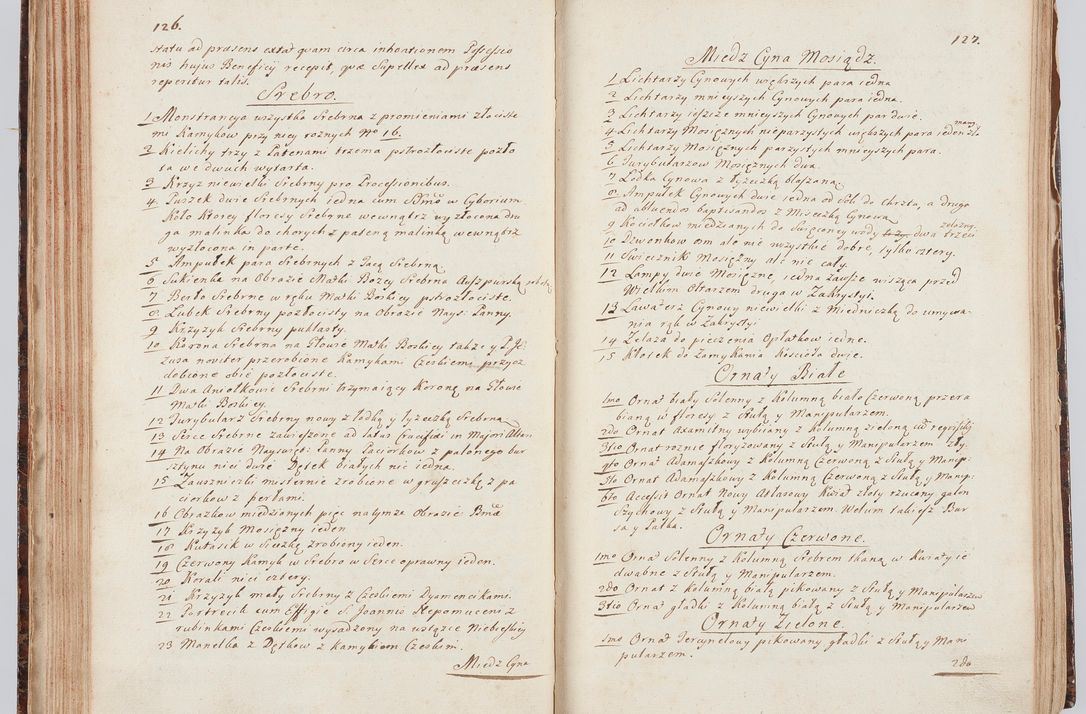 126.
statu ad praesens extat quam circa inhoationem Possessio
nis hujus Beneficij recepit, quae Supellex ad praesens
reperitur talis.
Srebro.
1 Monstrancya wszystka Srebrna z promieniami złociste
mi Kamykow przy niey rożnych No 16.
2 Kielichy trzy z Patenami trzema pstrozłociste pozło
ta we dwuch wytarta.
3 Krzyż niewielki Srebrny pro Processionibus.
4 Puszek dwie Srebrnych iedna cum SSmo w Cyborium
Koło Ktorey floresy Srebrne wewnątrz wyzłocona dru
ga malinka do chorych z pateną malinką wewnątrz
wyzłocona in parte.
5 Ampułek para Srebrnych z Tacą Srebrną
6 Sukienka na Obrazie Matki Bożey Srebrna Auszpurską
7 Berło Srebrne w ręku Matki Boskiey pstrozłociste.
8 Ząbek Srebrny pozłocisty na Obrazie Nays: Panny.
9 Krzyżyk Srebrny puklasty.
10 Korona Srebrna na Głowie Matki Boskiey także y P. Je
zusa noviter przerobione Kamykami Czeskiemi przyoz
dobione obie pozłociste.
11 Dwa Aniołkowie Srebrni trzymaiący Koronę na Głowie
Matki Boskiey.
12 Turybularz Srebrny nowy z łodką y łyżeczką Srebrną
13 Serce Srebrne zawieszone ad latus Crucifixi in Majori Altari
14 Na Obrazie Nayswięt: Panny Paciorkow z palonego bur
sztynu nici dwie Dętek białych nić iedna.
15 Zauszniczki misternie zrobione w gruszeczkę z pa
ciorkow z perłami.
16 Obrazkow miedzianych pięc na tymże Obrazie
17 Krzyżyk Mosiężny ieden
18 Kutasik w siuzkę zrobiony ieden.
19 Czerwony Kamyk w Srebro w Serce oprawny ieden.
20 Korali nici cztery.
21 Krzyżyk mały Srebrny z Czeskiemi Dyamencikami.
22 Portrecik cum Effigie S. Joannis Nepomuceni z
rubinkami Czeskiemi wysadzony na wstążce Niebieskiey
23 Manelka z Dętkow z Kamykiem Czeskim.
Miedz Cyna
127.
Miedz Cyna Mosiądz.
1 Lichtarzy Cynowych większych para iedna
2 Lichtarzy mnieyszych Cynowych para iedna.
3 Lichtarzy ieszcze mnieyszych Cynowych par dwie.
4 Lichtarzy Mosiężnych nieparzystych większych para ieden
5 Lichtarzy Mosiężnych parzystych mnieyszych para.
6 Turybularzow Mosiężnych dwa.
7 Łodka Cynowa z łyżeczką blaszaną
8 Ampułek Cynowych dwie iedna od Soli do chrztu, a druga
ad abluendos baptisandos z Miseczką Cynową
9 Kociołkow miedzianych do Swięconey wody dwa trzeci żelazny.
10 Dzwonkow ośm ale nie wszystkie dobre, tylko cztery.
11 Swiecznik Mosiężny ale nie cały.
12 Lampy dwie Mosiężne, iedna zawsze wisząca przed
Wielkim Ołtarzem druga w Zakrystyi
13 Lawaterz Cynowy niewielki z Miedniczką do umywa
nia rąk w Zakrystyi
14 Żelaza do pieczenia Opłatkow iedne.
15 Kłotek do Zamykania Kościoła dwie.
Ornaty Białe
1mo Ornat biały Solenny z Kolumną biało Czerwoną przera
bianą w floresy z Stułą y Manipularzem.
2do Ornat Axamitny wybiiany z Kolumną zieloną
3tio Ornat rożnie floryzowany z Stułą y Manipularzem
4to Ornat Adamaszkowy z Kolumną Czerwoną z Stułą y Manip:
5to Ornat Adamaszkowy z Kolumną Czerwoną z Stułą y Manip:
6to Accessit Ornat Nowy Atłasowy Kwiat złoty rzucany galon
Szychowy z Stułą y Manipularzem. Welum takież Bur
sa y Palka.
Ornaty Czerwone.
1mo Ornat Solenny z Kolumną Srebrem tkaną w Kwiaty ie
dwabne z Stułą y Manipularzem.
2do Ornat z Kolumną białą pikowany z Stułą y Manipularzem
3tio Ornat gładki z Kolumną białą z Stułą y Manipularzem
Ornaty Zielone.
1mo Ornat Tercynelowy pikowany gładki z Stułą y Mani
pularzem.
2do